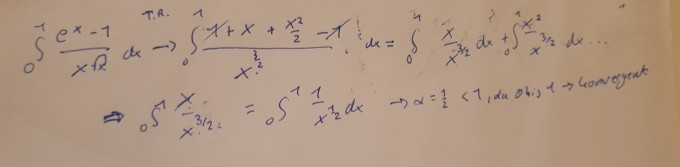 T.R.
∫₀¹ (e^x - 1)/(x√x) dx → ∫₀¹ (1 + x + x²/2 - 1)/x^(3/2) dx = ∫₀¹ x/x^(3/2) dx + ∫₀¹ x²/x^(3/2) dx ...
⇒ ∫₀¹ x/x^(3/2) = ∫₀¹ 1/x^(1/2) dx → α = 1/2 < 1, da 0 bis 1 → konvergent